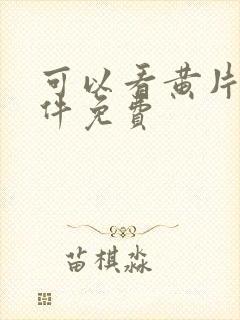 可以看黄片
件免费
苗棋淼